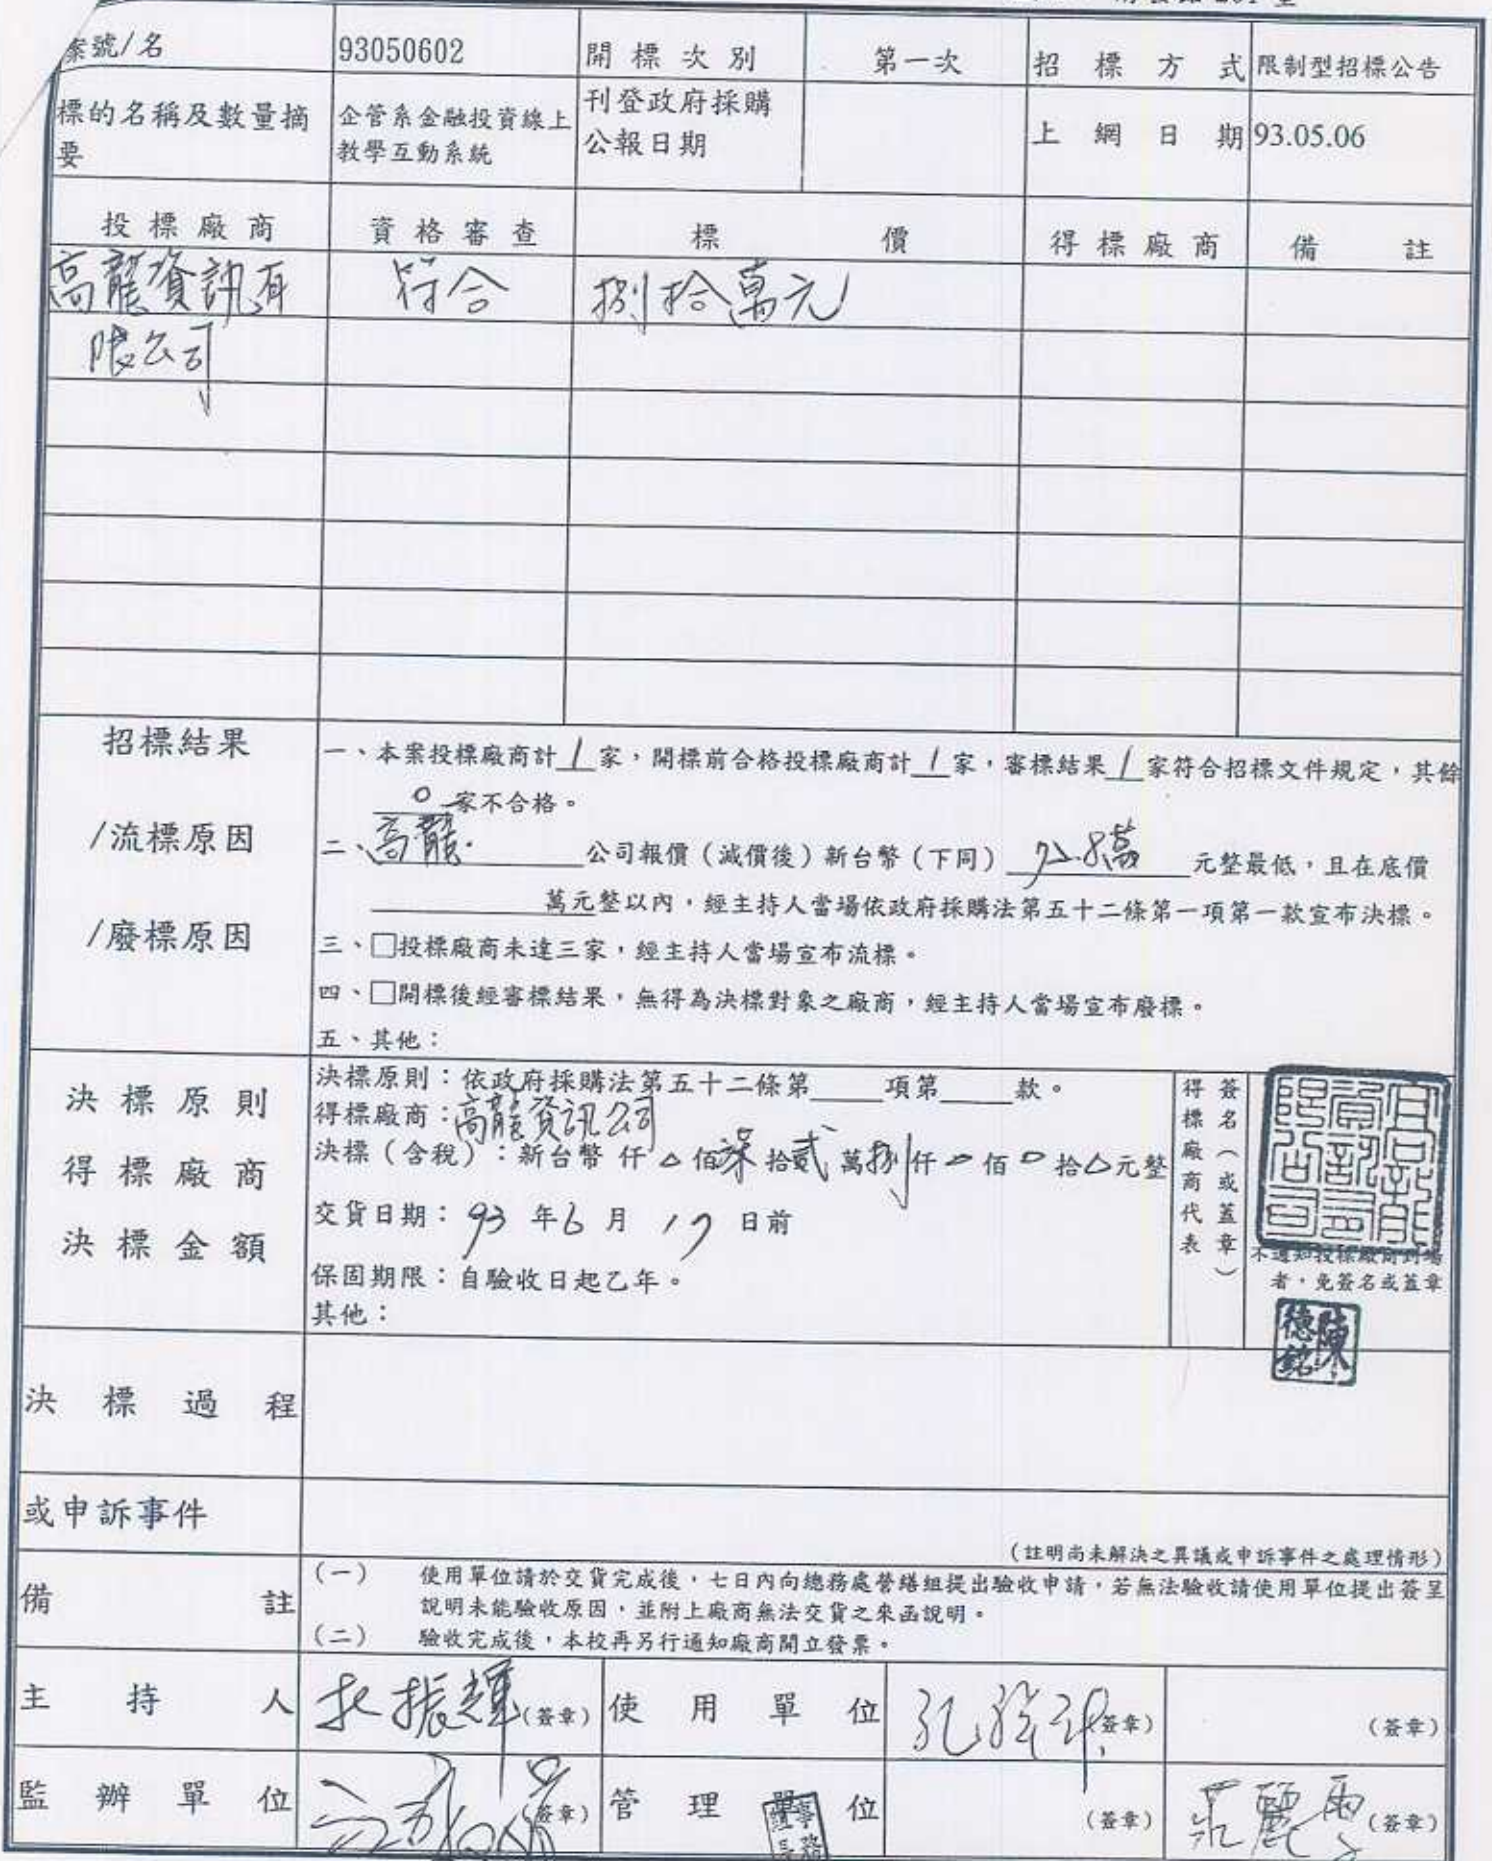 案號/名 93050602 開標次別 第一次 招標方式 限制型招標公告
標的名稱及數量摘要 企管系金融投資線上教學互動系統 刊登政府採購公報日期 上網日期 93.05.06
投標廠商 資格審查 標價 得標廠商 備註
高龍資訊有 符合 捌拾萬元
限公司
招標結果
/流標原因
/廢標原因
一、本案投標廠商計1家,開標前合格投標廠商計1家,審標結果1家符合招標文件規定,其餘
0家不合格。
二、高龍 公司報價(減價後)新台幣(下同)72.8萬 元整最低,且在底價
萬元整以內,經主持人當場依政府採購法第五十二條第一項第一款宣布決標。
三、□投標廠商未達三家,經主持人當場宣布流標。
四、□開標後經審標結果,無得為決標對象之廠商,經主持人當場宣布廢標。
五、其他:
決標原則
得標廠商
決標金額
決標原則:依政府採購法第五十二條第____項第____款。
得標廠商:高龍資訊公司
決標(含稅):新台幣 仟 0 佰柒拾貳萬捌仟 0 佰 0 拾 0 元整
交貨日期:93年6月17日前
保固期限:自驗收日起乙年。
其他:
得標廠商代表
簽名(或蓋章)
不通知投標廠商到場
者,免簽名或蓋章
陳德銘
決標過程
或申訴事件
(註明尚未解決之異議或申訴事件之處理情形)
備註
(一) 使用單位請於交貨完成後,七日內向總務處營繕組提出驗收申請,若無法驗收請使用單位提出簽呈
說明未能驗收原因,並附上廠商無法交貨之來函說明。
(二) 驗收完成後,本校再另行通知廠商開立發票。
主持人 振輝(簽章) 使用單位 (簽章) (簽章)
監辦單位 (簽章) 管理單位 (簽章) 莊麗雪(簽章)